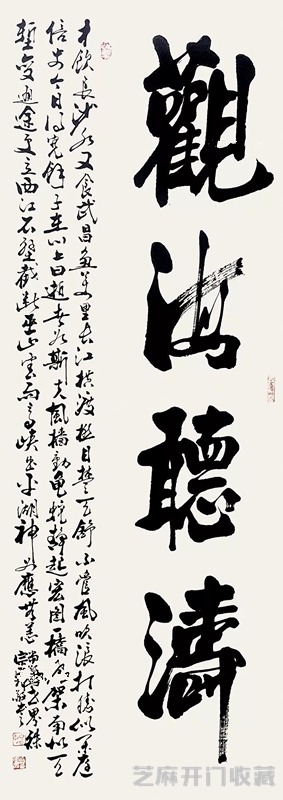 觀海聽濤
才飲長沙水又食武昌魚萬里長江橫渡極目楚天舒不管風吹浪打勝似閑庭
信步今日得寬餘子在川上曰逝者如斯夫風檣動龜蛇靜起宏圖一橋飛架南北天
塹變通途更立西江石壁截斷巫山雲雨高峽出平湖神女應無恙當驚世界殊
芝麻开门收藏